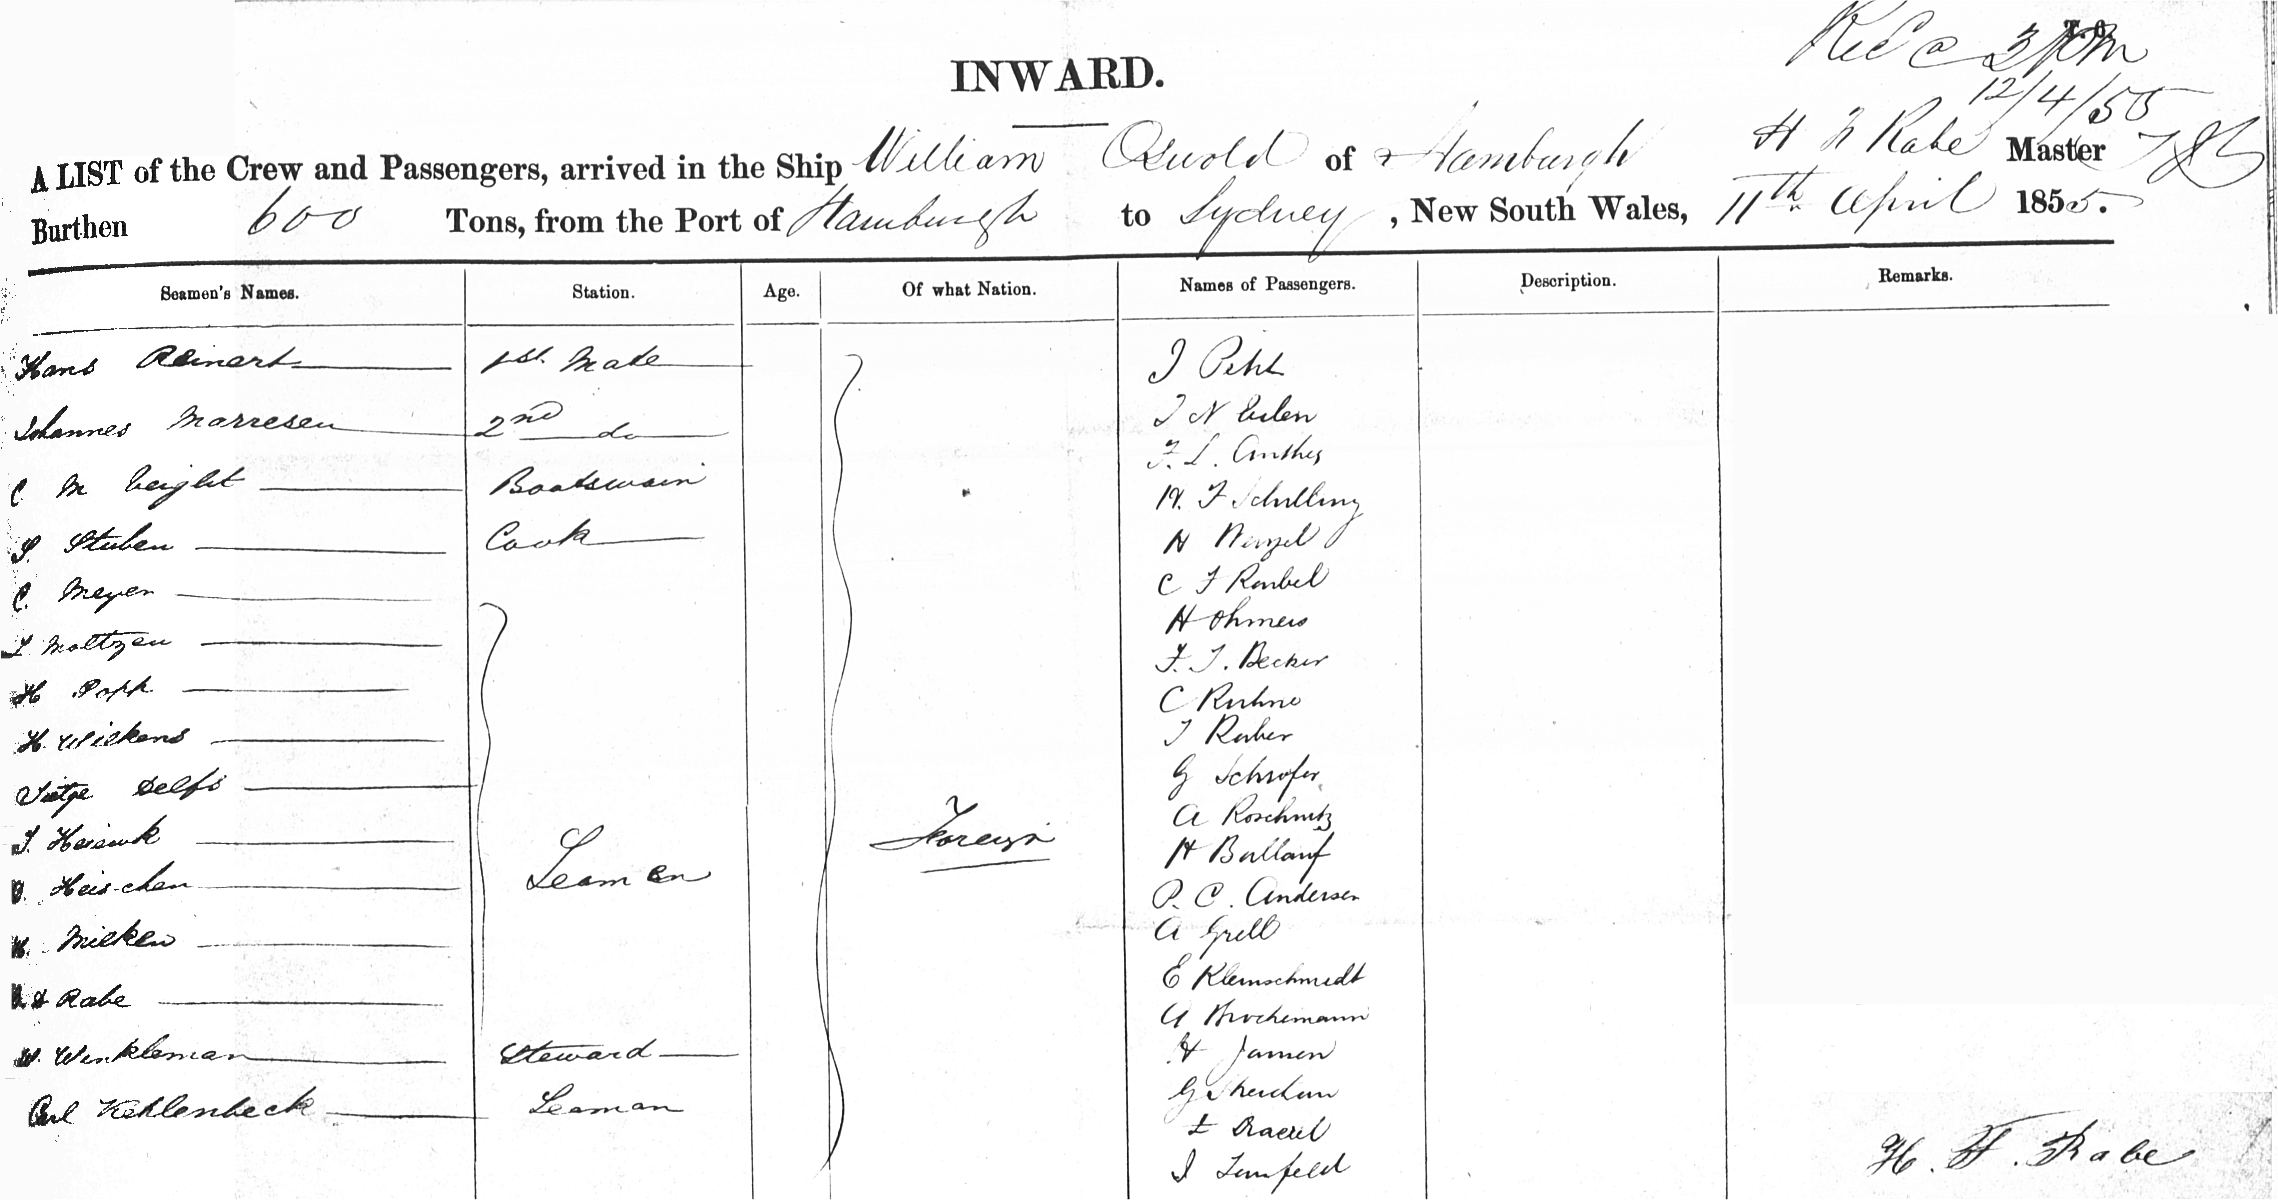 Rec @ 3 PM
12/4/55
INWARD.
A LIST of the Crew and Passengers, arrived in the Ship William Oswold of Hamburgh H F Rabe Master
Burthen 600 Tons, from the Port of Hamburgh to Sydney, New South Wales, 11th April 1855.
Seamen's Names. Station. Age. Of what Nation. Names of Passengers. Description. Remarks.
Hans Reinert 1st. Mate
Johannes Marresen 2nd do
C M Boatswain
Stuben Cook
C. Meyer
Moltzen
H Popp
H. Wilkens
Delfs
Heis-chen
Milken
Rabe
W. Winkleman Steward
Carl Kehlenbeck Seaman
Seamen
Foreign
J N Eulen
F. L. Anthes
F Schilling
H Wenzel
C F Raubel
H Ohmers
F. J. Becker
C Kuhne
J Rauber
G Schrofer
A Roschmitz
H Ballauf
P. C. Andersen
A Grell
E Kleinschmidt
A Brockmann
H Jansen
G
L
J
H. F. Rabe